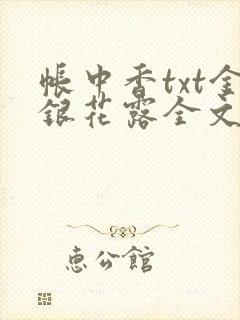 帳中香txt金
銀花露全文
惠公館